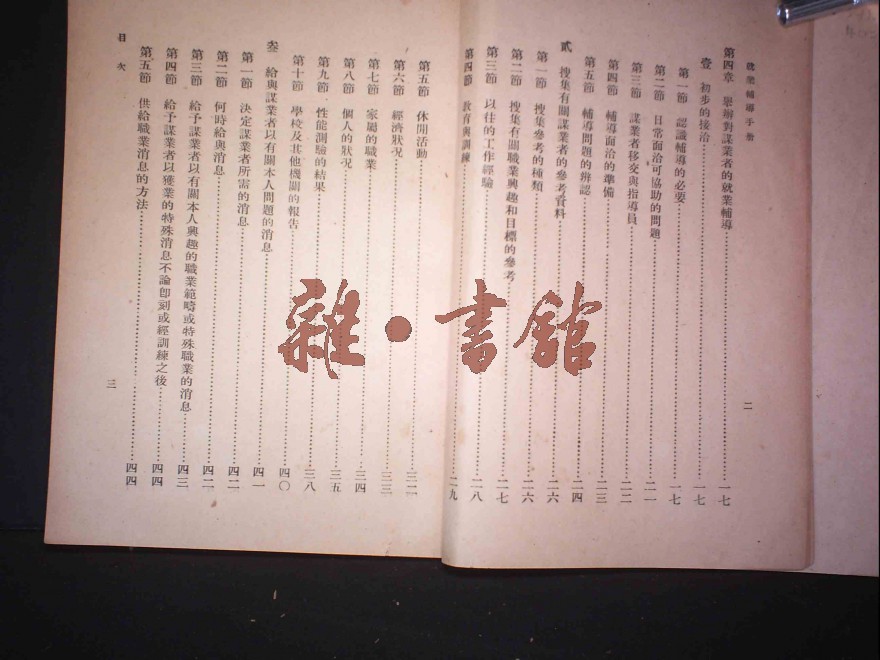 就業輔導手冊
二
第四章 舉辦對謀業者的就業輔導 一七
壹 初步的接洽 一七
第一節 認識輔導的必要 一七
第二節 日常面洽可協助的問題 二一
第三節 謀業者移交與指導員 二二
第四節 輔導面洽的準備 二三
第五節 輔導問題的辨認 二四
貳 搜集有關謀業者的參考資料 二六
第一節 搜集參考的種類 二六
第二節 搜集有關職業興趣和目標的參考 二七
第三節 以往的工作經驗 二八
第四節 教育與訓練 二九
第五節 休閒活動 三二
第六節 經濟狀況 三三
第七節 家屬的職業 三四
第八節 個人的狀況 三五
第九節 性能測驗的結果 三八
第十節 學校及其他機關的報告 四〇
叁 給與謀業者以有關本人問題的消息 四一
第一節 決定謀業者所需的消息 四二
第二節 何時給與消息 四二
第三節 給予謀業者以有關本人興趣的職業範疇或特殊職業的消息 四三
第四節 給予謀業者以獲業的特殊消息不論卽刻或經訓練之後 四四
第五節 供給職業消息的方法 四四
目次
三
雜·書館